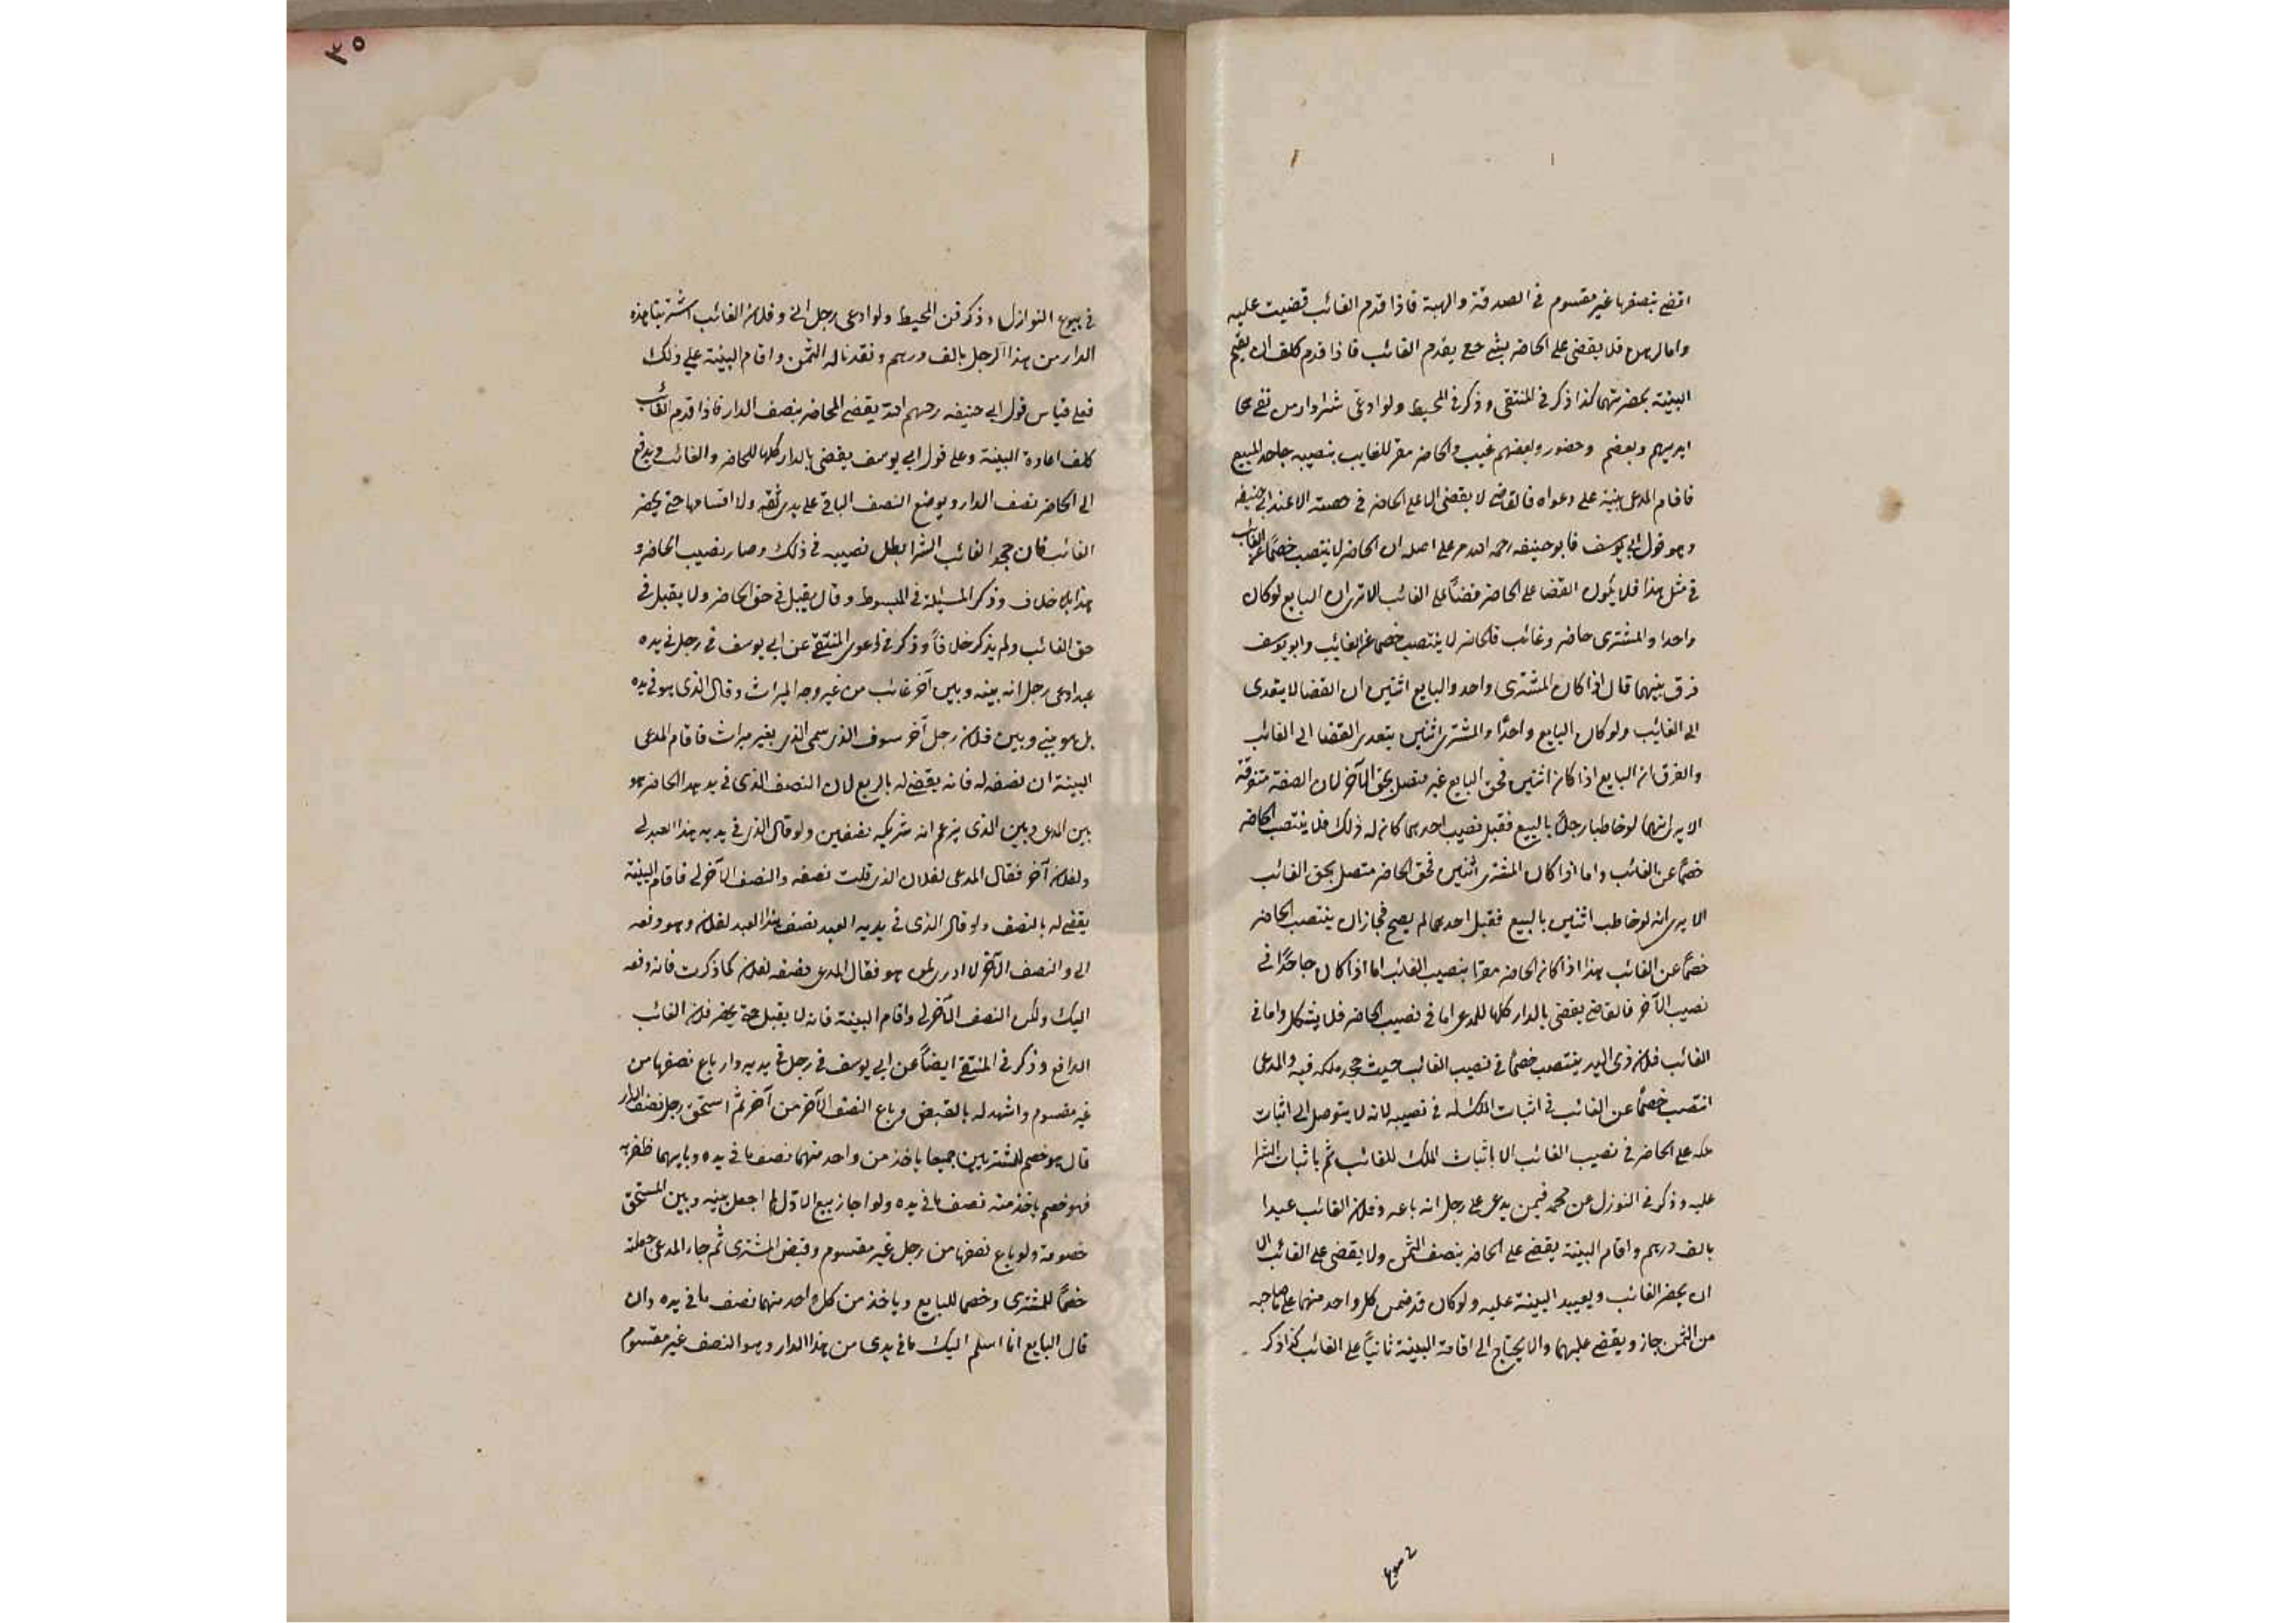 اقضى بنصفها غير مقسوم في الصدقة والهبة فاذا قدم الغائب قضيت عليه
واما الرهن فلا يقضى على الحاضر بشي حتى يقدم الغائب فاذا قدم كلف ان يقيم
البينة بحضرتهما كذا ذكر في المنتقى وذكر في المحيط ولو ادعى شرا دار من نفر
ايديهم وبعضهم وحضور وبعضهم غيب والحاضر مقر للغايب بنصيبه جاحد المبيع
فاقام المدعى بينة على دعواه فالقاضي لا يقضى الا على الحاضر في حصته الا عند ابي حنيفة
وهو قول ابي يوسف فابو حنيفه رحمه الله مر على اصله ان الحاضر لا ينتصب خصمًا عن الغائب
في مثل هذا فلا يكون القضا على الحاضر قضاً على الغائب الا ترى ان البايع لو كان
واحدا والمشترى حاضر وغائب فالحاضر لا ينتصب خصما عن الغايب وابو يوسف
فرق بينهما قال اذا كان المشترى واحد والبايع اثنين ان القضا لا يتعدى
الى الغايب ولو كان البايع واحدًا والمشترى اثنين يتعدى القضا الى الغائب
والفرق ان البايع اذا كان اثنين فحق البايع غير متصل بحق الآخر لان الصفقة متفرقة
الا يرى انهما لو خاطبا رجلاً بالبيع فقبل نصيب احدهما كان له ذلك فلا ينتصب الحاضر
خصمًا عن الغائب واما اذا كان المشترى اثنين فحق الحاضر متصل بحق الغائب
الا يرى انه لو خاطب اثنين بالبيع فقبل احدهما لم يصح فجاز ان ينتصب الحاضر
خصمًا عن الغائب هذا اذا كان الحاضر مقرًا بنصيب الغائب اما اذا كان جاحدًا في
نصيب الآخر فالقاضي يقضى بالدار كلها للمدعى اما في نصيب الحاضر فلا يشكل واما في
الغائب فلان ذى اليد ينتصب خصمًا في نصيب الغائب حيث جحد ملكه فيه والمدعى
انتصب خصمًا عن الغائب في اثبات الملك له في نصيبه لانه لا يتوصل الى اثبات
ملكه على الحاضر في نصيب الغائب الا باثبات الملك للغائب ثم باثبات الشرا
عليه وذكر في النوزل عن محمد فيمن يدعى على رجل انه باعه وفلان الغائب عبدا
بالف درهم واقام البينة يقضى على الحاضر بنصف الثمن ولا يقضى على الغائب الا
ان يحضر الغائب ويعيد البينة عليه ولو كان قد ضمن كل واحد منهما على صاحبه
من الثمن جاز ويقضى عليهما والا يحتاج الى اقامة البينة ثانيًا على الغائب كذا ذكر
٣٥
في بيوع النوازل وذكر في المحيط ولو ادعى رجل انى وفلان الغائب اشترينا هذه
الدار من هذا الرجل بالف درهم ونقدنا له الثمن واقام البينة على ذلك
فعلى قياس قول ابي حنيفه رحمهم الله يقضى للحاضر بنصف الدار فاذا قدم الغائب
كلف اعادة البينة وعلى قول ابي يوسف يقضى بالدار كلها للحاضر والغائب ويدفع
الى الحاضر نصف الدار ويوضع النصف الباقي على يدى ثقه ولا اقسامها حتى يحضر
الغائب فان جحد الغائب الشرا بطل نصيبه في ذلك وصار نصيب الحاضر و
هذا بلا خلاف وذكر المسئلة في المبسوط وقال يقبل في حق الحاضر ولا يقبل في
حق الغائب ولم يذكر خلافاً وذكر في دعوى المنتقى عن ابي يوسف في رجل في يده
عبد ادعى رجل انه بينه وبين آخر غائب من غير وجه الميراث وقال الذى هو في يده
بل هو بيني وبين فلان رجل آخر سوف الذى سمى الذى بغير ميراث فاقام المدعى
البينة ان نصفه له فانه يقضى له بالربع لان النصف الذى في يد هذا الحاضر هو
بين المدعى وبين الذى يزعم انه شريكه نصفين ولو قال الذى في يديه هذا العبد لي
ولفلان آخر فقال المدعى لفلان الذى قلت نصفه والنصف الآخر لي فاقام البينة
يقضى له بالنصف ولو قال الذى في يديه العبد نصف هذا العبد لفلان وهو دفعه
الى والنصف الآخر لا ادرى لمن هو فقال المدعى نصفه لفلان كما ذكرت فانه دفعه
اليك ولكن النصف الآخر لي واقام البينة فانه لا يقبل حتى يحضر فلان الغائب
الدافع وذكر في المنتقى ايضاً عن ابي يوسف في رجل في يديه دار باع نصفها من
غير مقسوم واشهد له بالقبض وباع النصف الآخر من آخر ثم استحق رجل نصف الدار
قال هو خصم للمشتريين جميعا ياخذ من واحد منهما نصف ما في يده وبايهما ظفر به
فهو خصم ياخذ منه نصف ما في يده ولو اجاز بيع الاول لم اجعل بينه وبين المستحق
خصومة ولو باع نصفها من رجل غير مقسوم وقبض المشترى ثم جاء المدعى جعلته
خصمًا للمشترى وخصما للبايع وياخذ من كل واحد منهما نصف ما في يده وان
قال البايع انا اسلم اليك ما في يدى من هذا الدار وهو النصف غير مقسوم